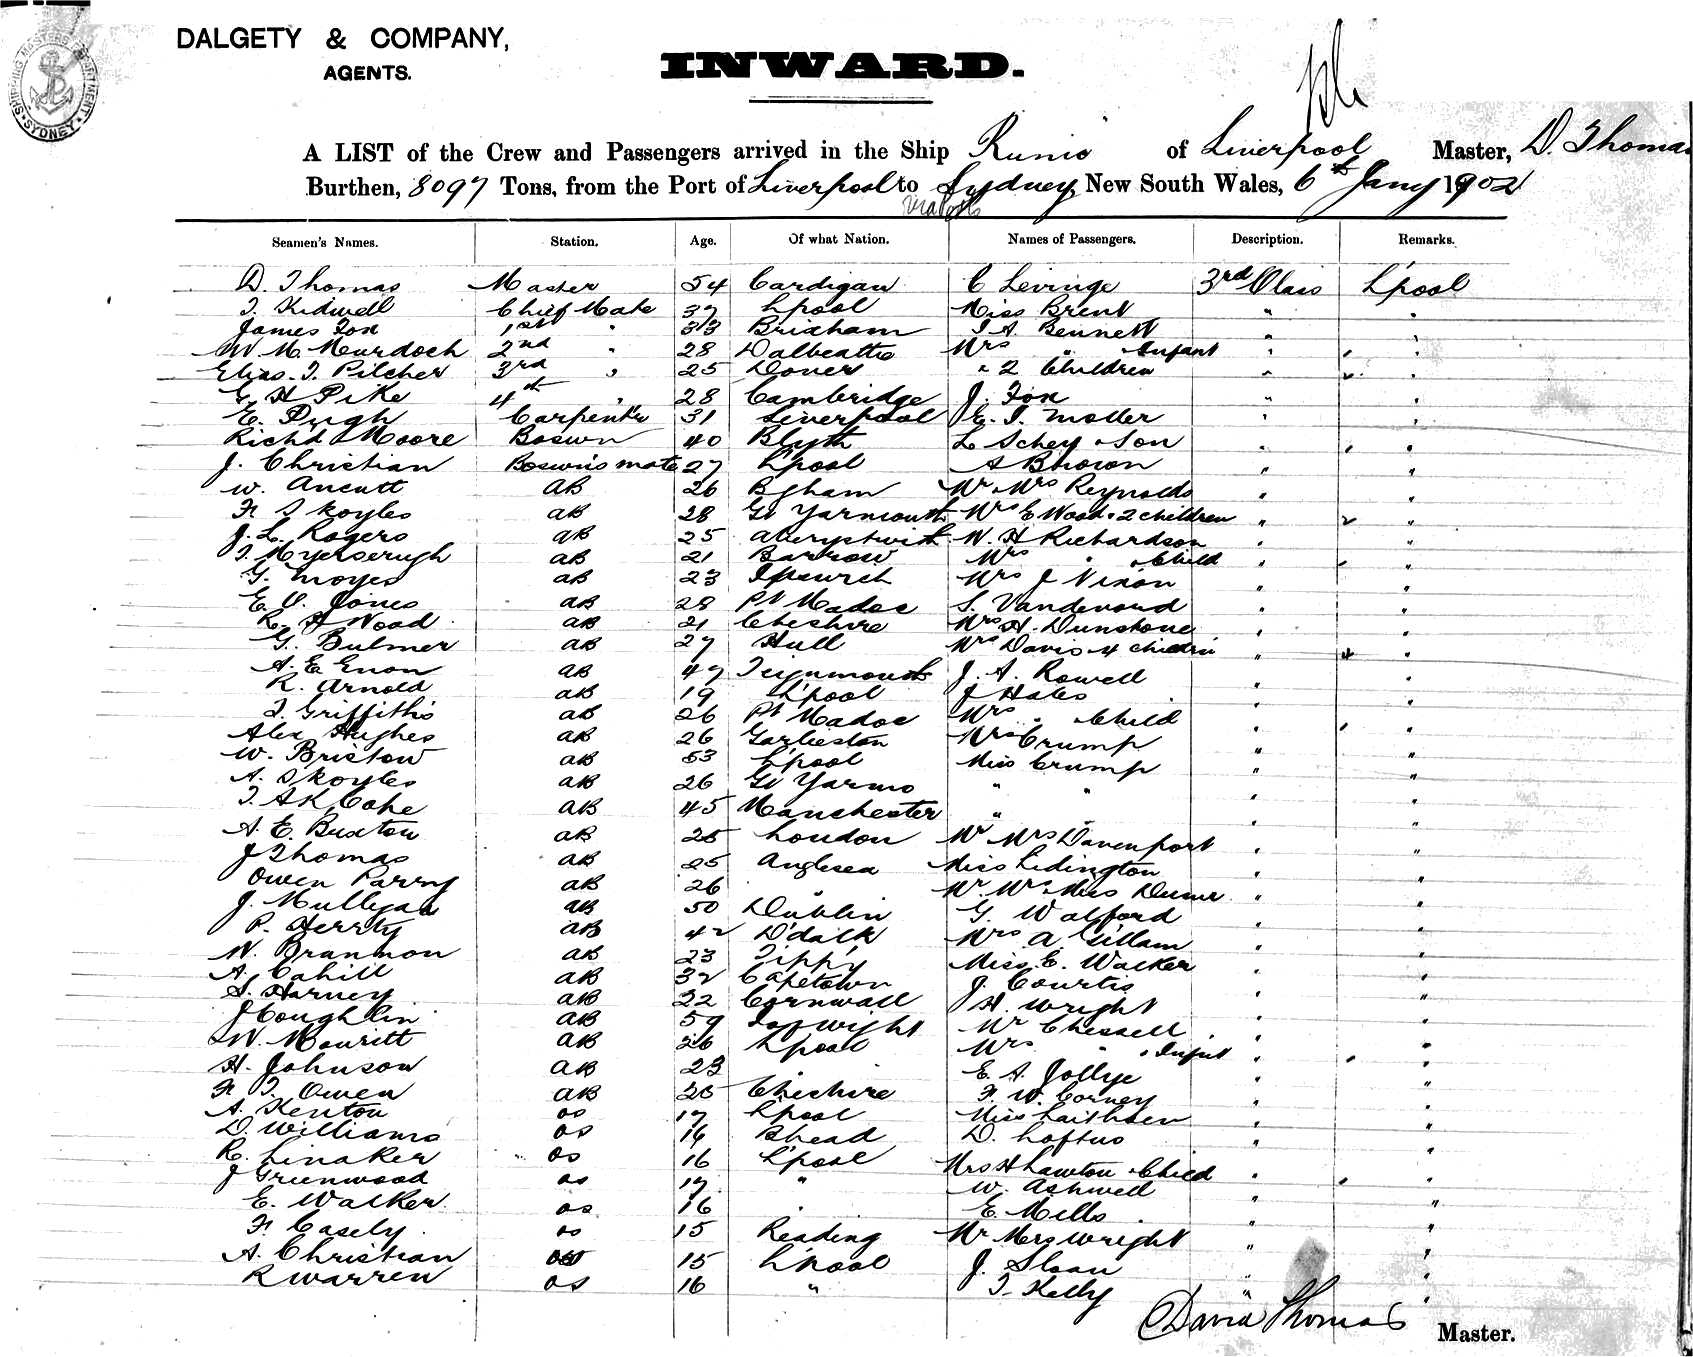 DALGETY & COMPANY,
AGENTS.
INWARD.
SHIPPING MASTERS DEPARTMENT SYDNEY
A LIST of the Crew and Passengers arrived in the Ship Runic of Liverpool Master, D. Thomas
Burthen, 8097 Tons, from the Port of Liverpool to Sydney, New South Wales, 6th Jany 1902
via Ports
Seamen's Names. Station. Age. Of what Nation. Names of Passengers. Description. Remarks.
D. Thomas Master 54 Cardigan C Levinge 3rd Class L'pool
T. Kidwell Chief Mate 37 L'pool Miss Brent " "
James Fox 1st " 33 Brixham T A Bennett " "
W M Murdoch 2nd " 28 Dalbeattie Mrs " Infant " "
Elias T. Pilcher 3rd " 25 Dover " 2 Children " "
G H Pike 4th " 28 Cambridge J. Fox " "
E. Pugh Carpenter 31 Liverpool E. T. Motler " "
Richd Moore Boswn 40 Blyth L Schey & Son " "
J. Christian Boswns mate 27 L'pool A Brown " "
W. Ancutt AB 26 B'ham Mr Mrs Reynolds " "
F Skoyles AB 28 Gt Yarmouth Mrs E Wood & 2 children " 2 "
J. L. Rogers AB 25 Aberystwith W. H Richardson " "
T. AB 21 Barrow Mrs " Child " "
G. Moyes AB 23 Ipswich Mrs J Nixon " "
E. O. Jones AB 28 Pt Madoc S. Vandevord " "
R. H Wood AB 21 Cheshire Mrs H. Dunstone " "
G. Bulmer AB 27 Hull Mrs Davis 4 children " 4 "
A. E Enon AB 47 Teignmouth J. A. Rowell " "
R. Arnold AB 19 L'pool J Hales " "
T. Griffiths AB 26 Pt Madoc Mrs " Child " "
Alex Hughes AB 26 Garlieston Mrs Crump " "
W. Bristow AB 53 L'pool Miss Crump " "
A. Skoyles AB 26 Gt Yarmo " " " "
T. A K Coke AB 45 Manchester " " " "
A. E. Buxton AB 25 London Mr Mrs Davenport " "
J Thomas AB 25 Anglesea Miss Lidington " "
Owen Parry AB 26 " Mr Mrs Miss " "
J. Mulligan AB 50 Dublin G. Walford " "
P. Herrty AB 42 D'dalk Mrs A. Gillam " "
W. Brannon AB 23 Tippy Miss E. Walker " "
A. Cahill AB 32 Capetown J. Courtis " "
S. Harney AB 22 Cornwall H. Wright " "
J Coughlin AB 59 I of Wight Mr Chessell " "
W. Mouritt AB 26 L'pool Mrs " & Infant " "
H. Johnson AB 23 " E A. Jollye " "
F T. Owen AB 25 Cheshire F. W. Corney " "
A. Kenton OS 17 L'pool Miss " "
D. Williams OS 16 B'head D. Loftus " "
R. Linaker OS 16 L'pool Mrs H Lawton & Child " "
J Greenwood OS 17 " W. Ashwell " "
E. Walker OS 16 " E. Mills " "
F Casely OS 15 Reading Mr Mrs Wright " "
A. Christian OS 15 L'pool J. Sloan " "
R Warren OS 16 " T. Kelly " "
David Thomas Master.